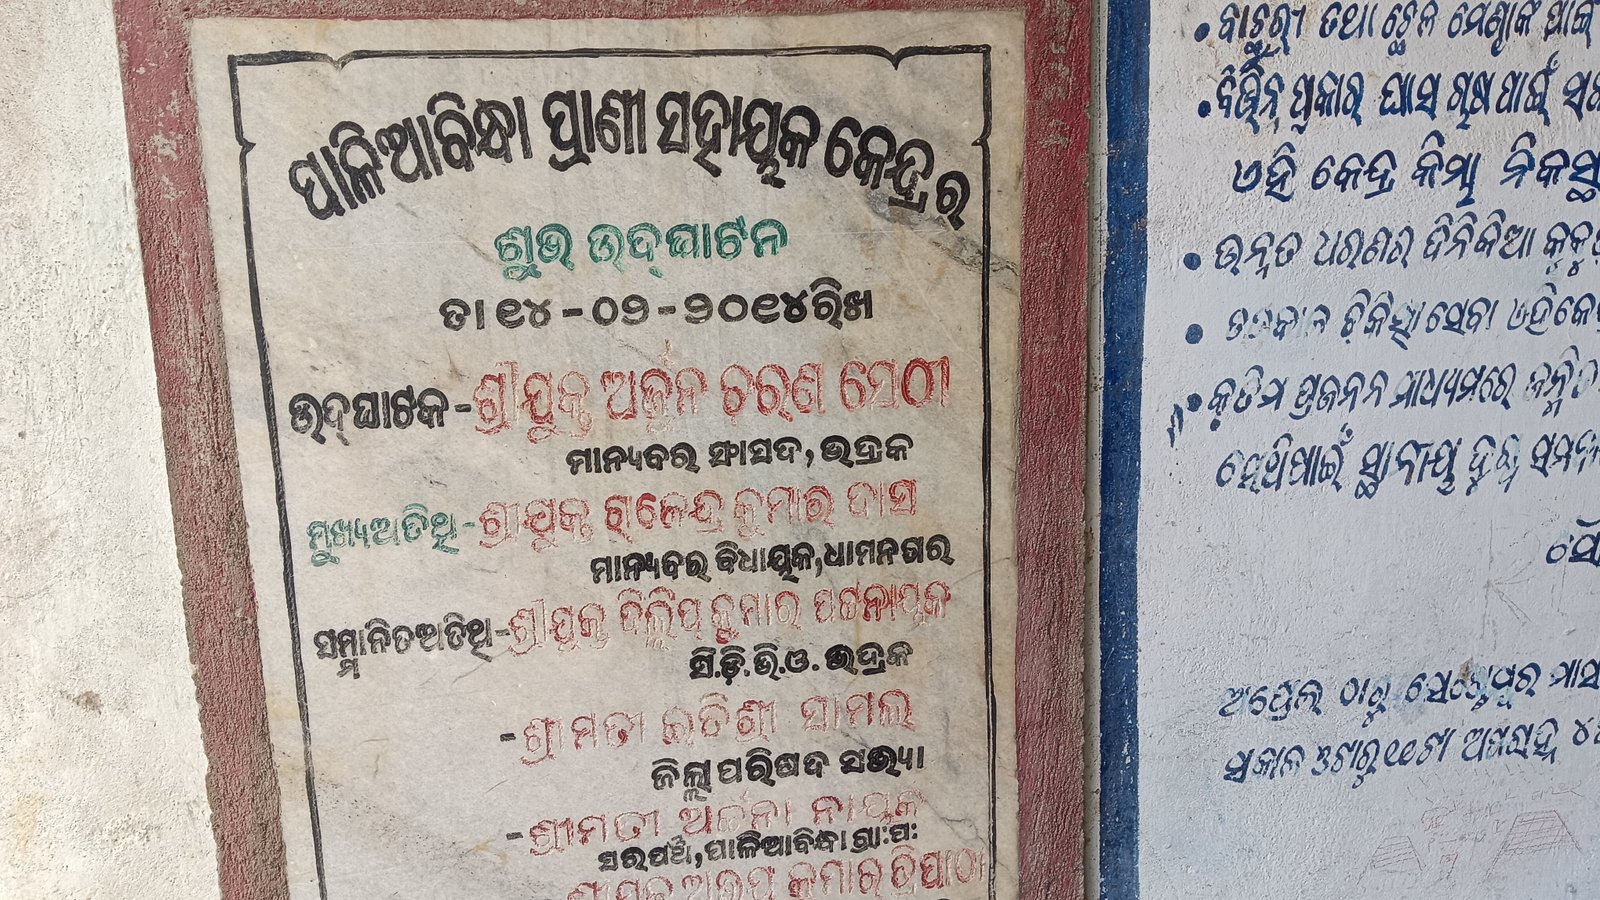 ପାଳିଆବିନ୍ଧା ପ୍ରାଣୀ ସହାୟକ କେନ୍ଦ୍ରର
ଶୁଭ ଉଦ୍‌ଘାଟନ
ତା ୧୪-୦୨-୨୦୧୪ରିଖ
ଉଦ୍‌ଘାଟକ-ଶ୍ରୀଯୁକ୍ତ ଅର୍ଜୁନ ଚରଣ ସେଠୀ
ମାନ୍ୟବର ସାଂସଦ, ଭଦ୍ରକ
ମୁଖ୍ୟଅତିଥି-ଶ୍ରୀଯୁକ୍ତ ରାଜେନ୍ଦ୍ର କୁମାର ଦାସ
ମାନ୍ୟବର ବିଧାୟକ,ଧାମନଗର
ସମ୍ମାନିତଅତିଥି-ଶ୍ରୀଯୁକ୍ତ ଦିଲ୍ଲିପ କୁମାର ପଟ୍ଟନାୟକ
ସି.ଡ଼ି.ଭି.ଓ. ଭଦ୍ରକ
-ଶ୍ରୀମତୀ ସାମଲ
ଜିଲ୍ଲା ପରିଷଦ ସଭ୍ୟା
-ଶ୍ରୀମତୀ ଅର୍ଚ୍ଚନା ନାୟକ
ସରପଞ୍ଚ,ପାଳିଆବିନ୍ଧା ଗ୍ରାଃପଃ
କୁମାର ତ୍ରିପାଠୀ
• ବାଛୁରୀ ତଥା ଛେଳି ମେଣ୍ଢାଙ୍କ ପାଇଁ
• ବିଭିନ୍ନ ପ୍ରକାର ଘାସ ଚାଷ ପାଇଁ
ଏହି କେନ୍ଦ୍ର କିମ୍ବା ନିକଟସ୍ଥ
• ଉନ୍ନତ ଧରଣର ଦିନିକିଆ
• ଚିକିତ୍ସା ସେବା ଏହିକେ
• କୃତିମ ପ୍ରଜନନ ମାଧ୍ୟମରେ
ସେଥିପାଇଁ ସ୍ଥାନୀୟ ଦୁଗ୍ଧ
ଅପ୍ରେଲ ଠାରୁ ସେପ୍ଟେମ୍ବର ମାସ
ସକାଳ ୭ଟାରୁ ୧୧ଟା ଅପରାହ୍ନ